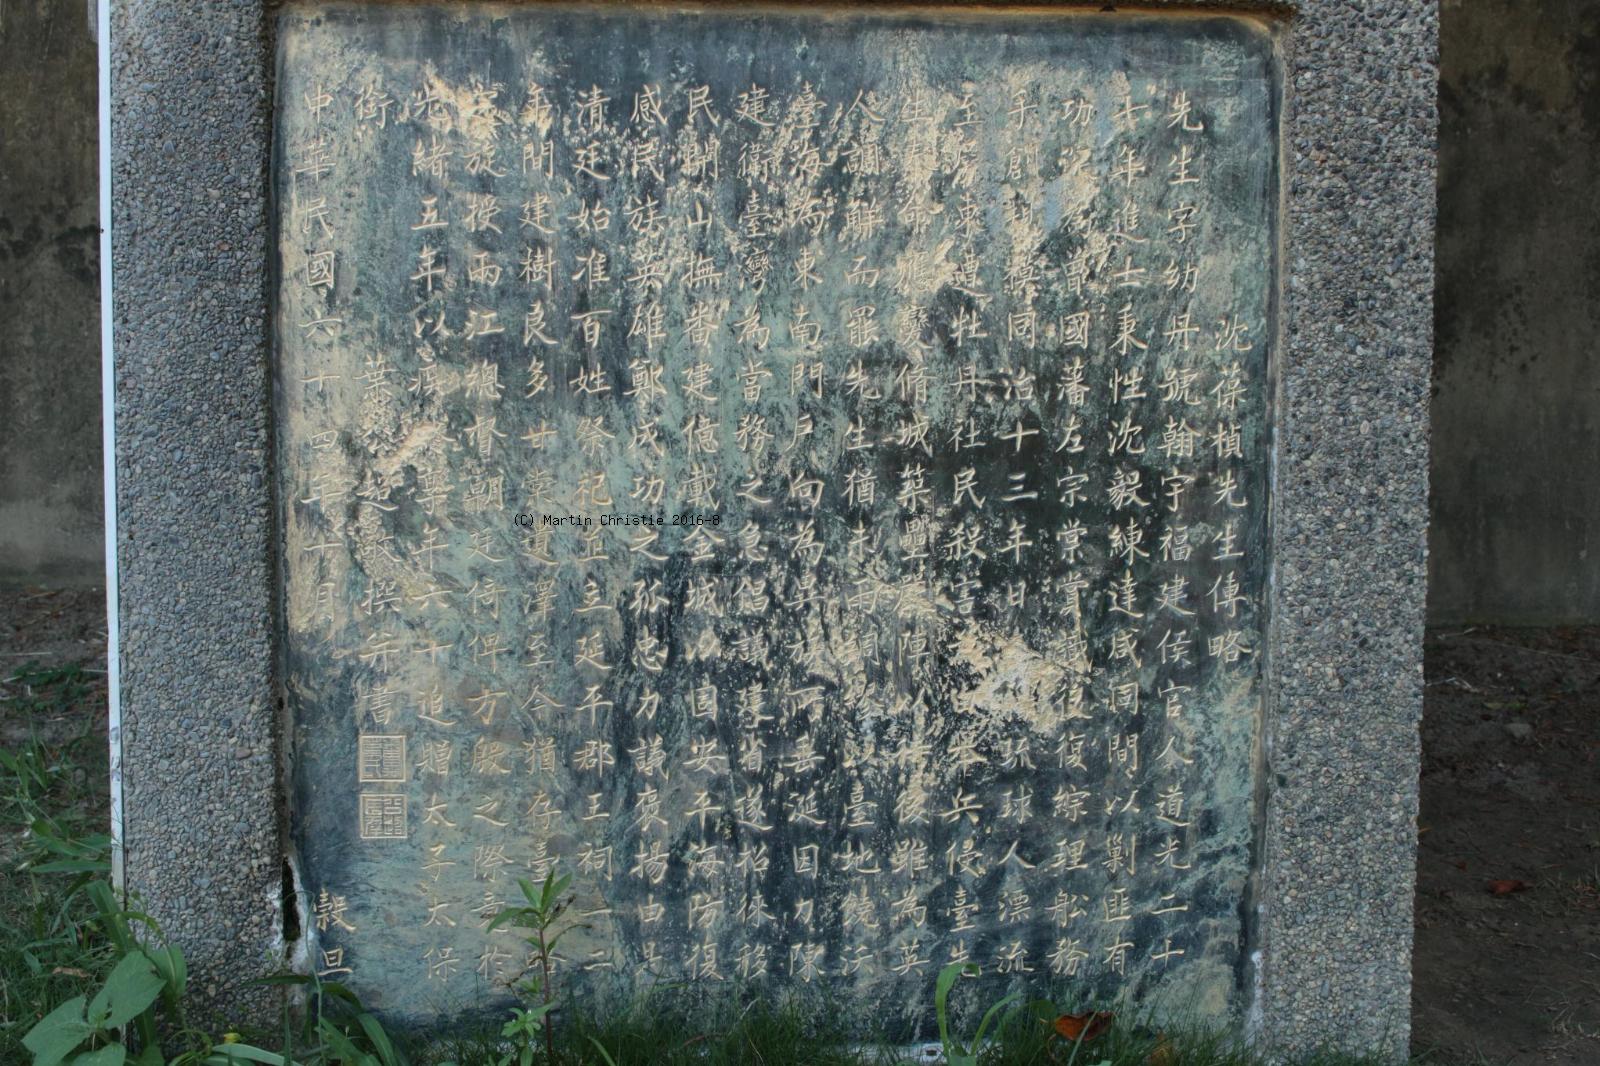 沈葆楨先生傳略
先生字幼丹號翰宇福建侯官人道光二十
七年進士秉性沈毅練達咸同間以剿匪有
功為曾國藩左宗棠賞識後復綜理船務
手創規模同治十三年日琉球人漂流
至臺東遭牡丹社民殺害兵侵臺先
生奉命應變脩城築壘嚴陣以待後雖為英
人調解而罷先生猶未雨綢繆以臺地饒沃
臺海為東南門戶向為異族所垂涎因力陳
建衛臺灣為當務之急倡議建省遂招徠移
民開山撫番建億載金城以固安平海防復
感民族英雄鄭成功之孤忠力議褒揚由是
清廷始准百姓祭祀並立延平郡王祠一二
年間建樹良多甘棠遺澤至今猶存臺
旋授兩江總督朝廷倚俾方殷之際竟於
光緒五年以疾薨年六十追贈太子太保
銜 葉超撰并書
中華民國六十四年十月 穀旦
(C) Martin Christie 2016-8